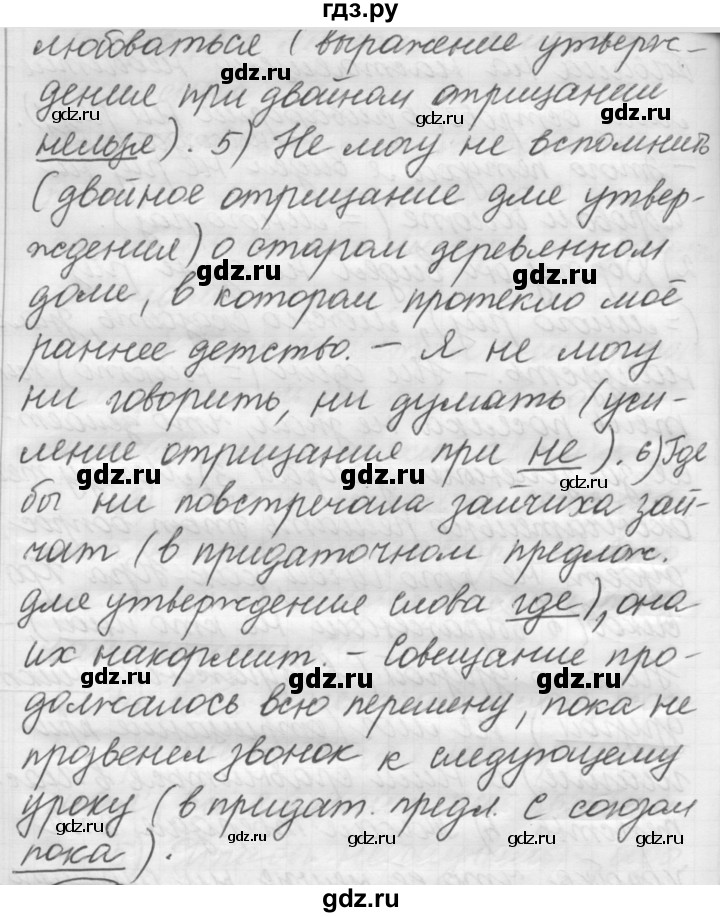 гдз.ру
любоваться (выражение утверж-
gdz.ru gdz.ru
дения при двойном отрицании
gdz.ru
нельзя). 5) Не могу не вспомнить
(двойное отрицание для утвер-
ждения) о старом деревянном
gdz.ru gdz.ru
доме, в котором протекло моё
раннее детство. – Я не могу
ни говорить, ни думать (уси-
ление отрицания при не). 6) Где
gdz.ru gdz.ru gdz.ru
бы ни повстречала зайчиха зай-
чат (в придаточном предлож.
для утверждения слова где), она
их накормит. – Совещание про-
gdz.ru gdz.ru gdz.ru
должалось всю перемену, пока не
прозвенел звонок к следующему
уроку (в придат. предл. с союзом
gdz.ru gdz.ru gdz.ru gdz.ru
пока).
gdz.ru